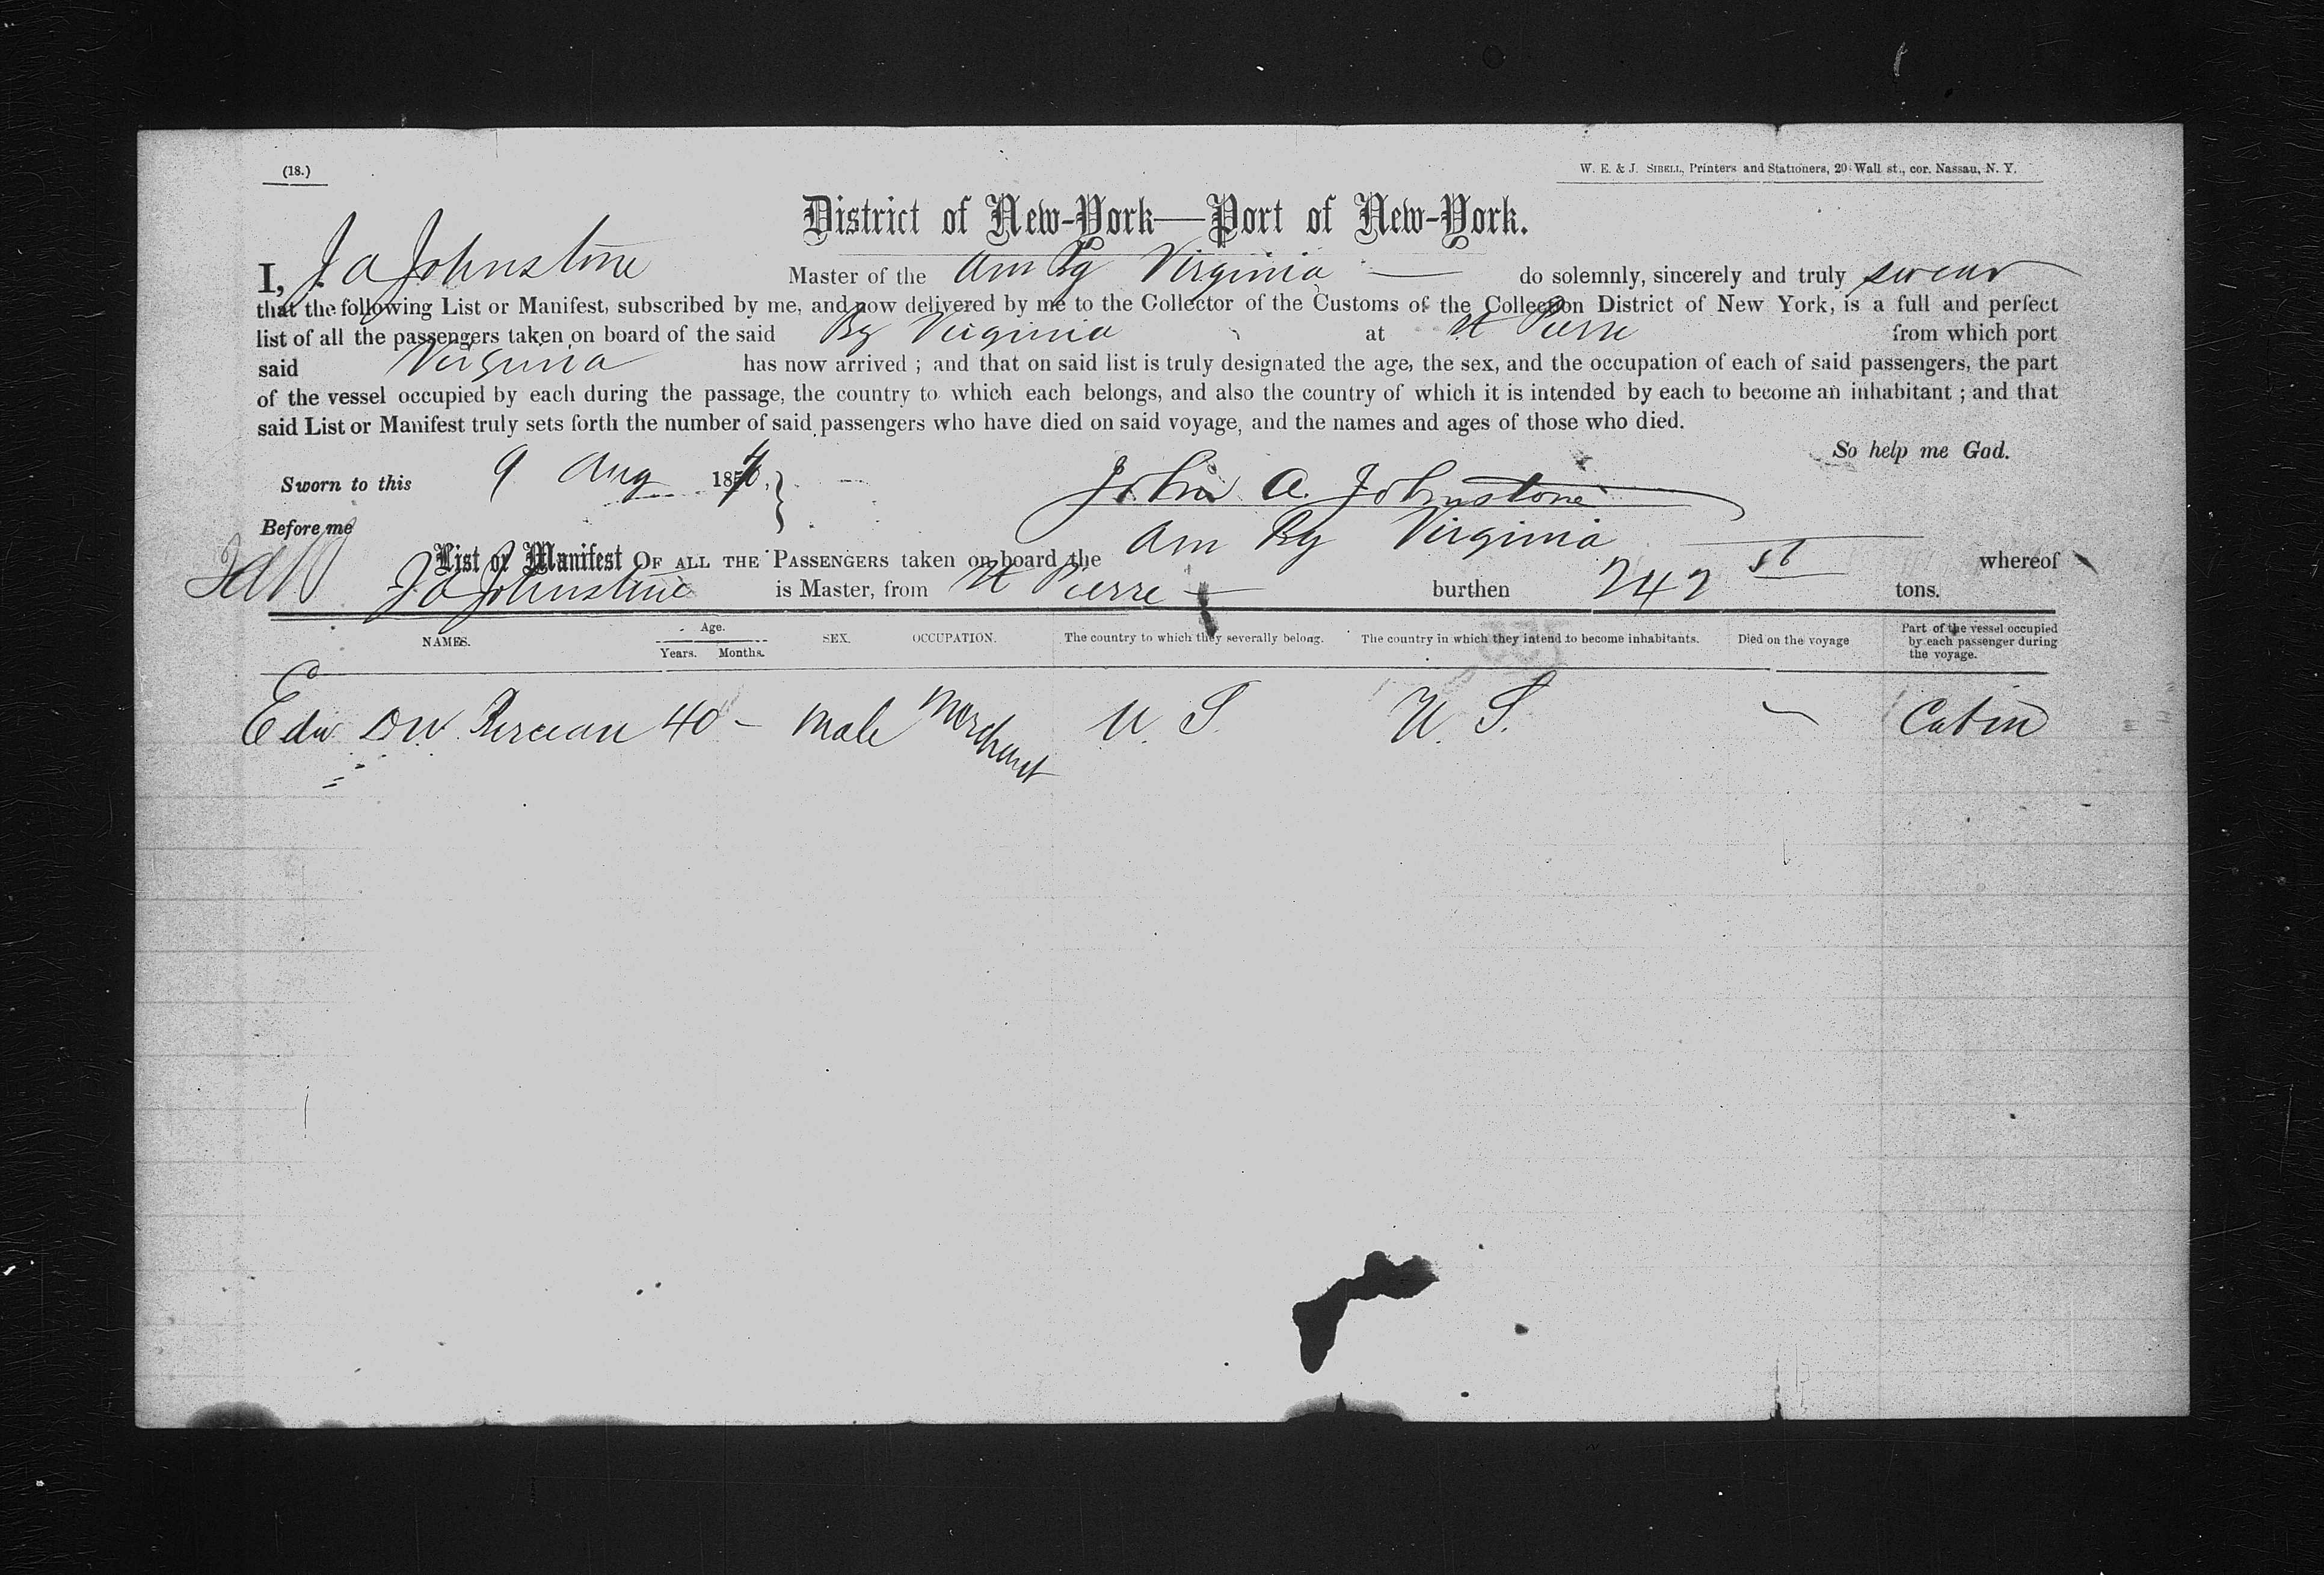 (18.)
W. E. & J. SIBELL, Printers and Stationers, 20 Wall st., cor. Nassau, N. Y.
District of New-York—Port of New-York.
I, J A Johnstone Master of the Am Bg Virginia — do solemnly, sincerely and truly swear
that the following List or Manifest, subscribed by me, and now delivered by me to the Collector of the Customs of the Collection District of New York, is a full and perfect
list of all the passengers taken on board of the said Bg Virginia at St Pierre from which port
said Virginia has now arrived ; and that on said list is truly designated the age, the sex, and the occupation of each of said passengers, the part
of the vessel occupied by each during the passage, the country to which each belongs, and also the country of which it is intended by each to become an inhabitant ; and that
said List or Manifest truly sets forth the number of said passengers who have died on said voyage, and the names and ages of those who died.
So help me God.
Sworn to this 9 Aug 18
John A. Johnstone
Before me
List or Manifest OF ALL THE PASSENGERS taken on board the Am Bg Virginia whereof
J A Johnstone is Master, from St Pierre — burthen 242 tons.
NAMES. Age. Years. Months. SEX. OCCUPATION. The country to which they severally belong. The country in which they intend to become inhabitants. Died on the voyage Part of the vessel occupied by each passenger during the voyage.
Edw 40 - Male Merchant U. S. U. S. — Cabin